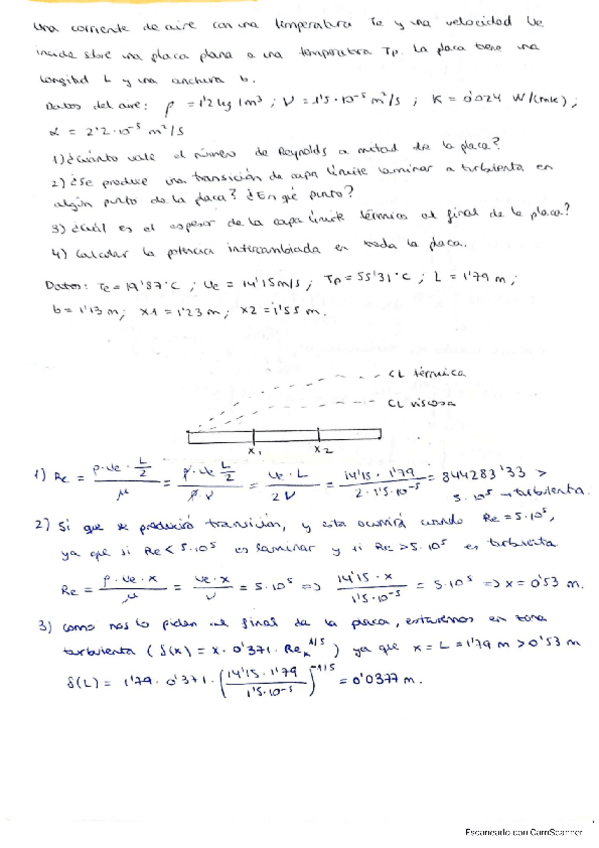 Una corriente de aire con una temperatura Te y una velocidad Ue
incide sobre una placa plana a una temperatura Tp. La placa tiene una
longitud L y una anchura b.
Datos del aire: ρ = 1'2 kg/m³ ; ν = 1'5·10⁻⁵ m²/s ; K = 0'024 W/(mK) ;
α = 2'2·10⁻⁵ m²/s
1) ¿Cuánto vale el número de Reynolds a mitad de la placa?
2) ¿Se produce una transición de capa límite laminar a turbulenta en
algún punto de la placa? ¿En qué punto?
3) ¿Cuál es el espesor de la capa límite térmica al final de la placa?
4) Calcular la potencia intercambiada en toda la placa.
Datos: Te = 19'87°C ; Ue = 14'15 m/s ; Tp = 55'31°C ; L = 1'79 m ;
b = 1'13 m ; x1 = 1'23 m ; x2 = 1'55 m.
CL térmica
CL viscosa
x₁ x₂
1) Re = ρ·ue·L/2 / μ = ρ·ue L/2 / ρ·ν = ue·L / 2ν = 14'15·1'79 / 2·1'5·10⁻⁵ = 844283'33 >
5·10⁵ → turbulenta.
2) Si que se producirá transición, y esta ocurrirá cuando Re = 5·10⁵,
ya que si Re < 5·10⁵ es laminar y si Re > 5·10⁵ es turbulenta
Re = ρ·ue·x / μ = ue·x / ν = 5·10⁵ => 14'15·x / 1'5·10⁻⁵ = 5·10⁵ => x = 0'53 m.
3) Como nos lo piden al final de la placa, estaremos en zona
turbulenta (δ(x) = x·0'371·Reₓ⁻¹/⁵) ya que x = L = 1'79 m > 0'53 m
δ(L) = 1'79·0'371·(14'15·1'79 / 1'5·10⁻⁵)⁻¹/⁵ = 0'0377 m.
Escaneado con CamScanner